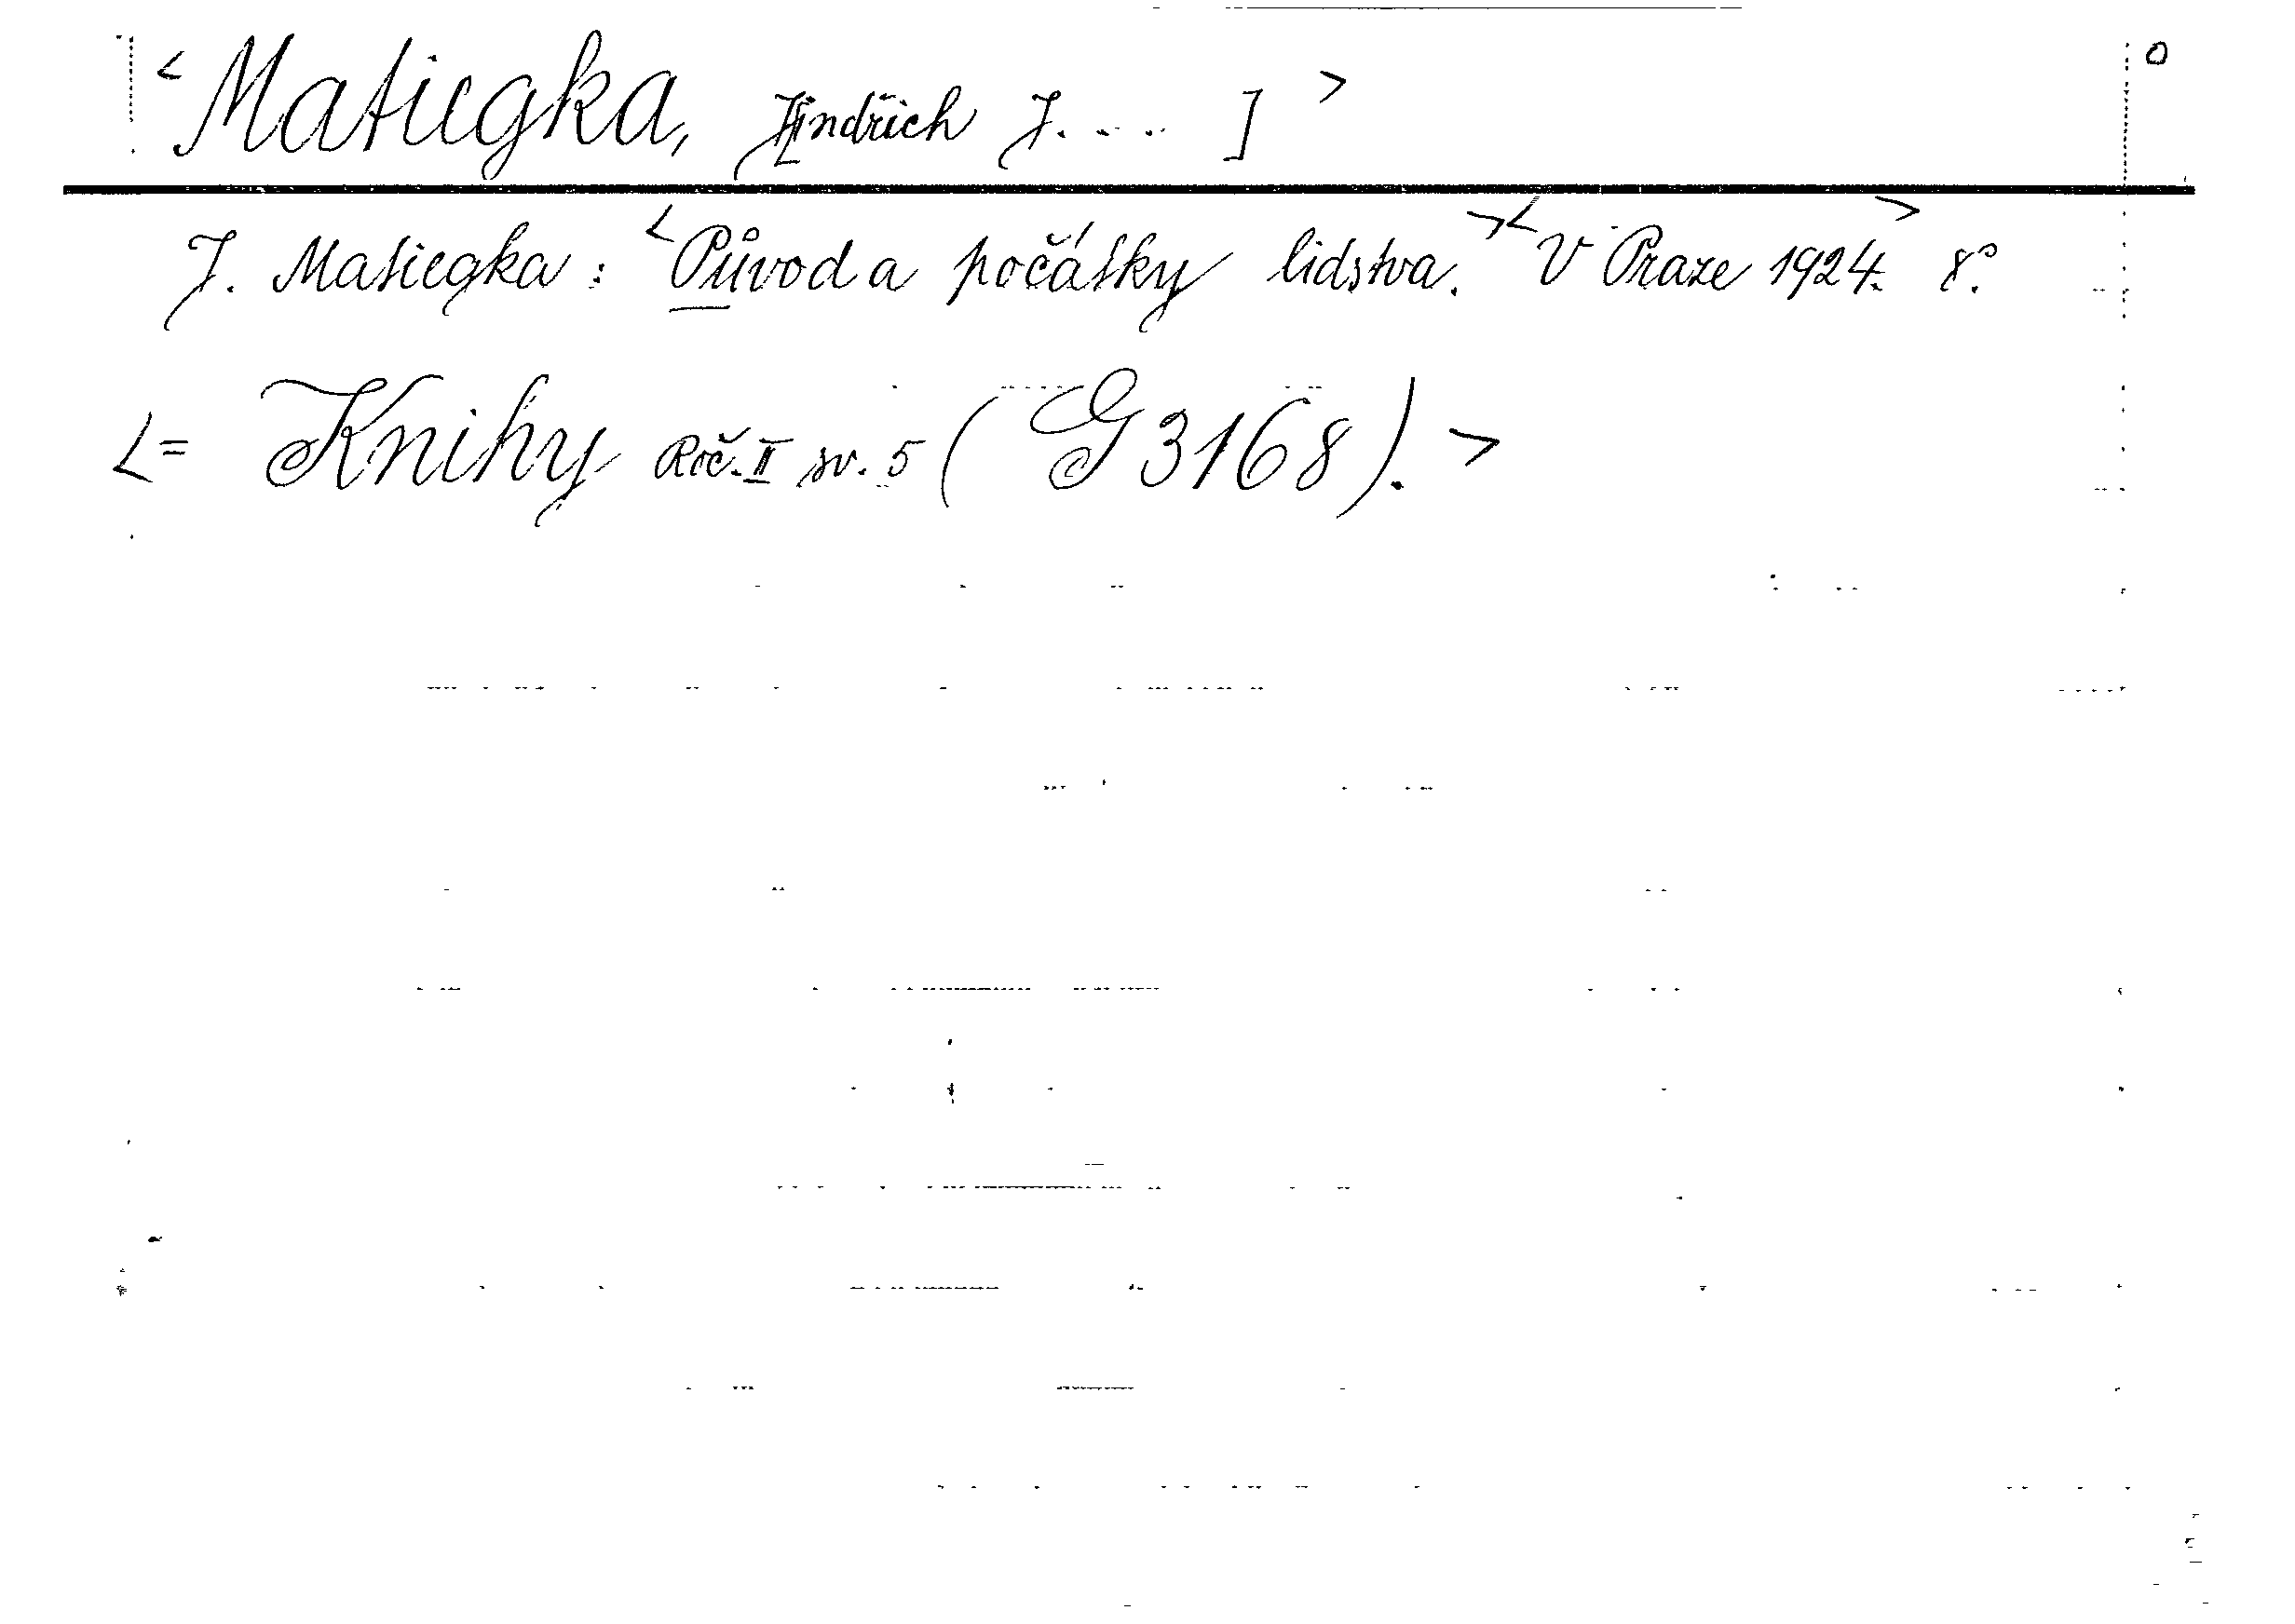 <Matiegka, J[indřich J. ... ]> o
J. Matiegka: <Původ a počátky lidstva.><V Praze 1924.> 8°.
<= Knihy Roč. II sv. 5 (G 3168).>